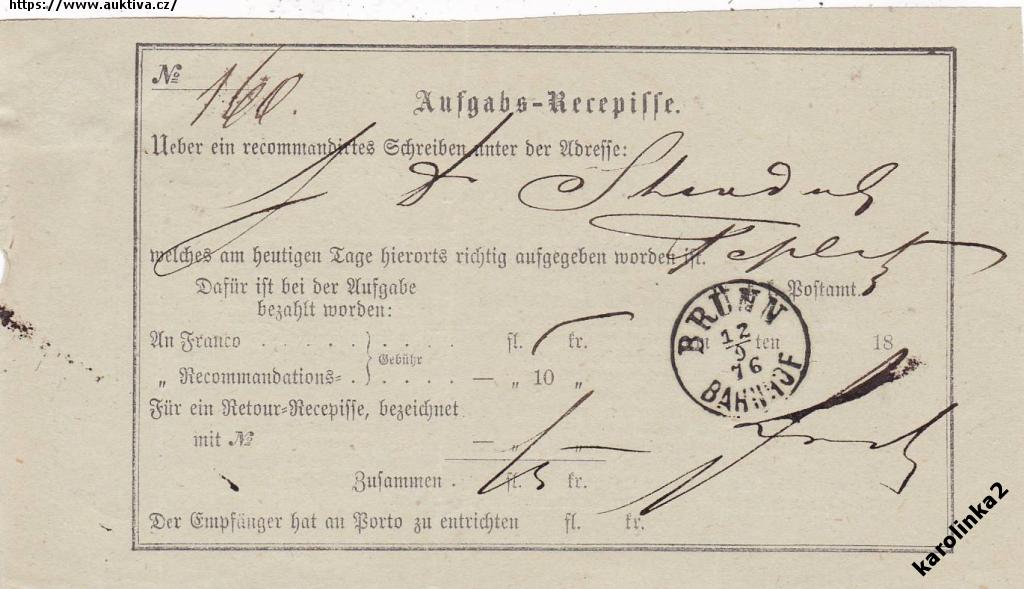 https://www.auktiva.cz/
№ 160.
Aufgabs-Recepisse.
Ueber ein recommandirtes Schreiben unter der Adresse:
welches am heutigen Tage hierorts richtig aufgegeben worden ist.
Dafür ist bei der Aufgabe
bezahlt worden:
Postamt
BRÜNN
12/9
76
BAHNHOF
An Franco . . . . . . . . . . fl. 5 kr.
ten 18
Gebühr
„ Recommandations= . . . . . — „ 10 „
Für ein Retour=Recepisse, bezeichnet
mit № — „ —
Zusammen . fl. 15 kr.
Der Empfänger hat an Porto zu entrichten fl. kr.
karolinka2